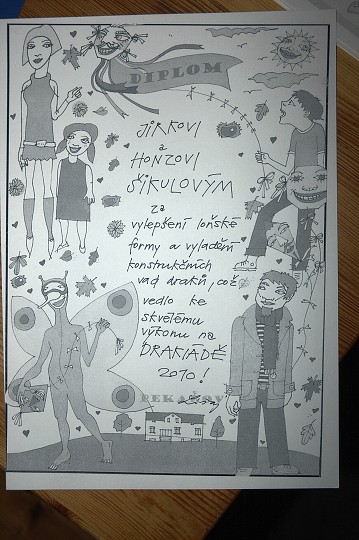 DIPLOM
JIRKOVI
a
HONZOVI
ŠIKULOVÝM
za
vylepšení loňské
formy a vyladění
konstrukčních
vad draků, což
vedlo ke
skvělému
výkonu na
DRAKIÁDĚ
2010!